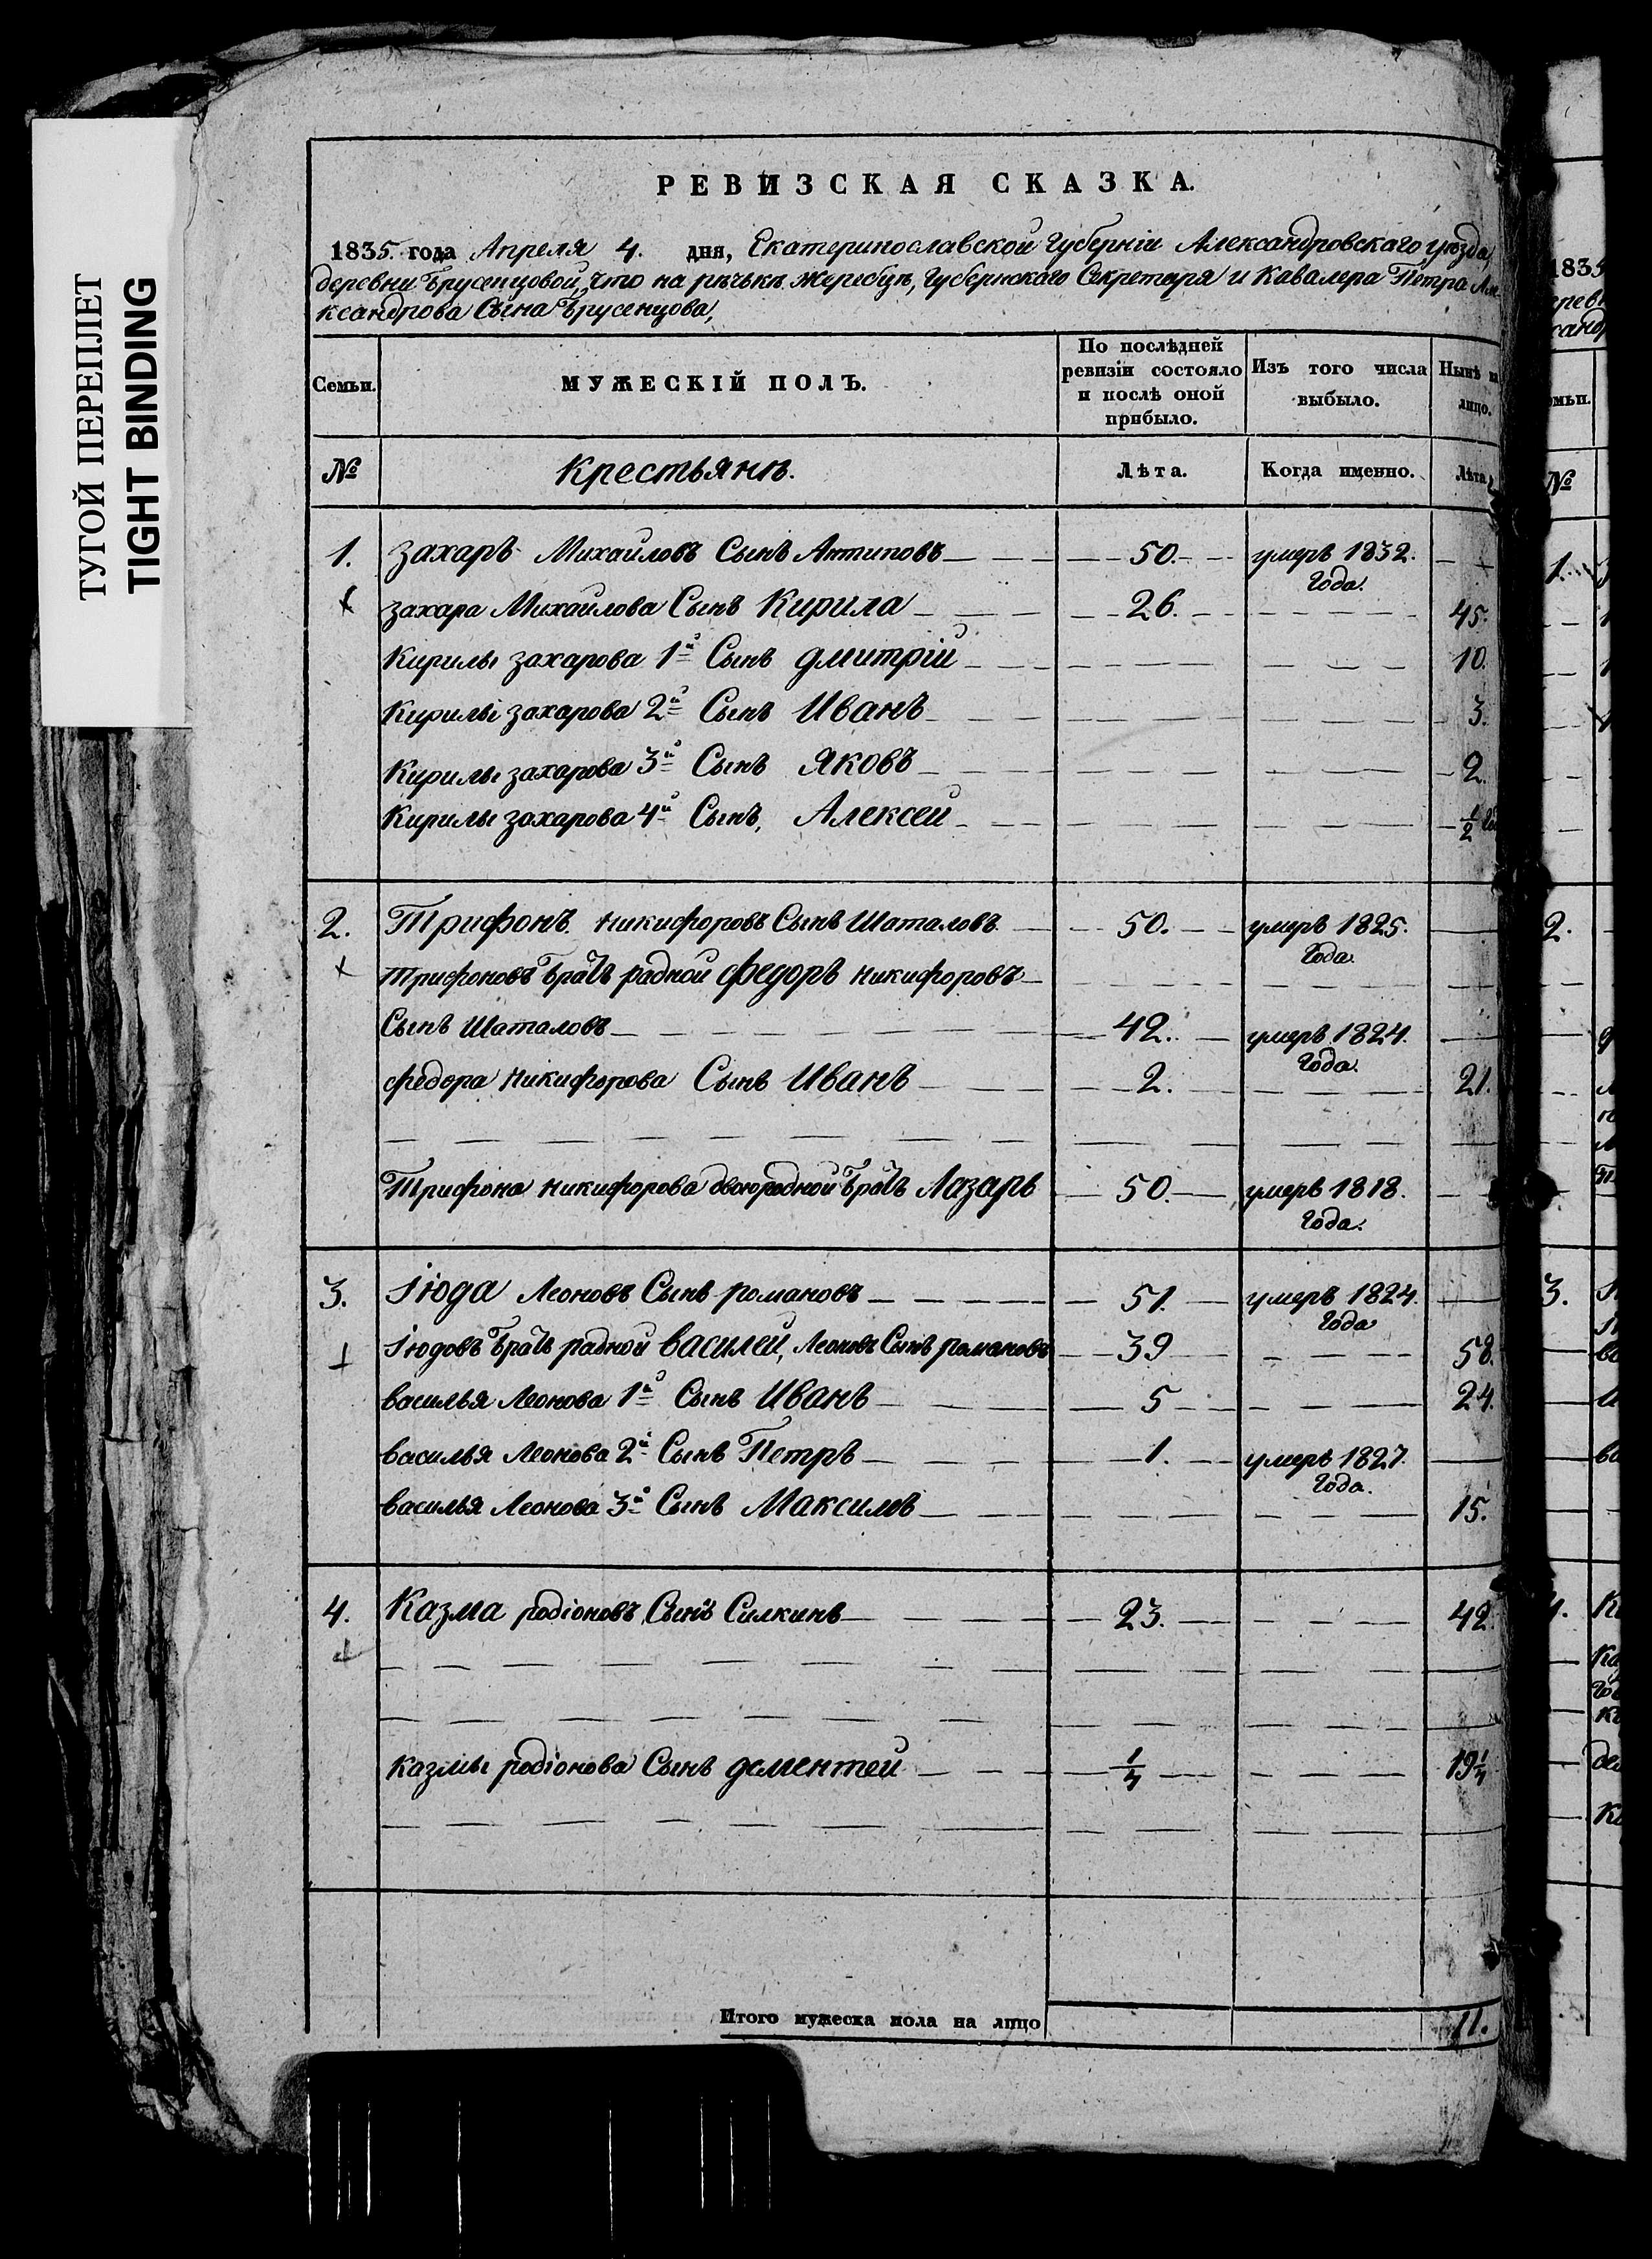 ТУГОЙ ПЕРЕПЛЕТ
TIGHT BINDING
РЕВИЗСКАЯ СКАЗКА.
1835. года Апреля 4. дня, Екатеринославской Губерніи Александровскаго уѣзда,
деревни Брусенцовой, что на рѣчькѣ Жеребцѣ, Губернскаго Секретаря и Кавалера Петра Але
ксандрова Сына Брусенцова,
Семьи. МУЖЕСКІЙ ПОЛЪ. По послѣдней ревизіи состояло и послѣ оной прибыло. Изъ того числа выбыло. Нынѣ на лицо.
№ Крестьянѣ. Лѣта. Когда именно. Лѣта
1. Захаръ Михайловъ Сынъ Антиповъ 50. умеръ 1832. Года.
захара Михайлова Сынъ Кирила 26. 45.
Кирилы захарова 1й Сынъ Дмитрій 10.
Кирилы захарова 2й Сынъ Иванъ 3.
Кирилы захарова 3й Сынъ Яковъ 2.
Кирилы захарова 4й Сынъ, Алексей 1/2
2. Трифонъ Никифоровъ Сынъ Шаталовъ 50. умеръ 1825. Года.
Трифоновъ Братъ радной Федоръ Никифоровъ
Сынъ Шаталовъ 42. умеръ 1824. Года.
Федора Никифорова Сынъ Иванъ 2. 21.
Трифона Никифорова двоюродной Братъ Лазарь 50. умеръ 1818. Года.
3. Іюда Леоновъ Сынъ романовъ 51. умеръ 1824. Года
Іюдовъ Братъ радной Василей, Леоновъ Сынъ романовъ 39 58.
Василья Леонова 1й Сынъ Иванъ 5 24.
Василья Леонова 2й Сынъ Петръ 1. умеръ 1827. Года.
Василья Леонова 3й Сынъ Максимъ 15.
4. Казма родіоновъ Сынъ Силкинъ 23. 42.
Казмы родіонова Сынъ дементей 1/4 19 1/4
Итого мужеска пола на лицо 11.